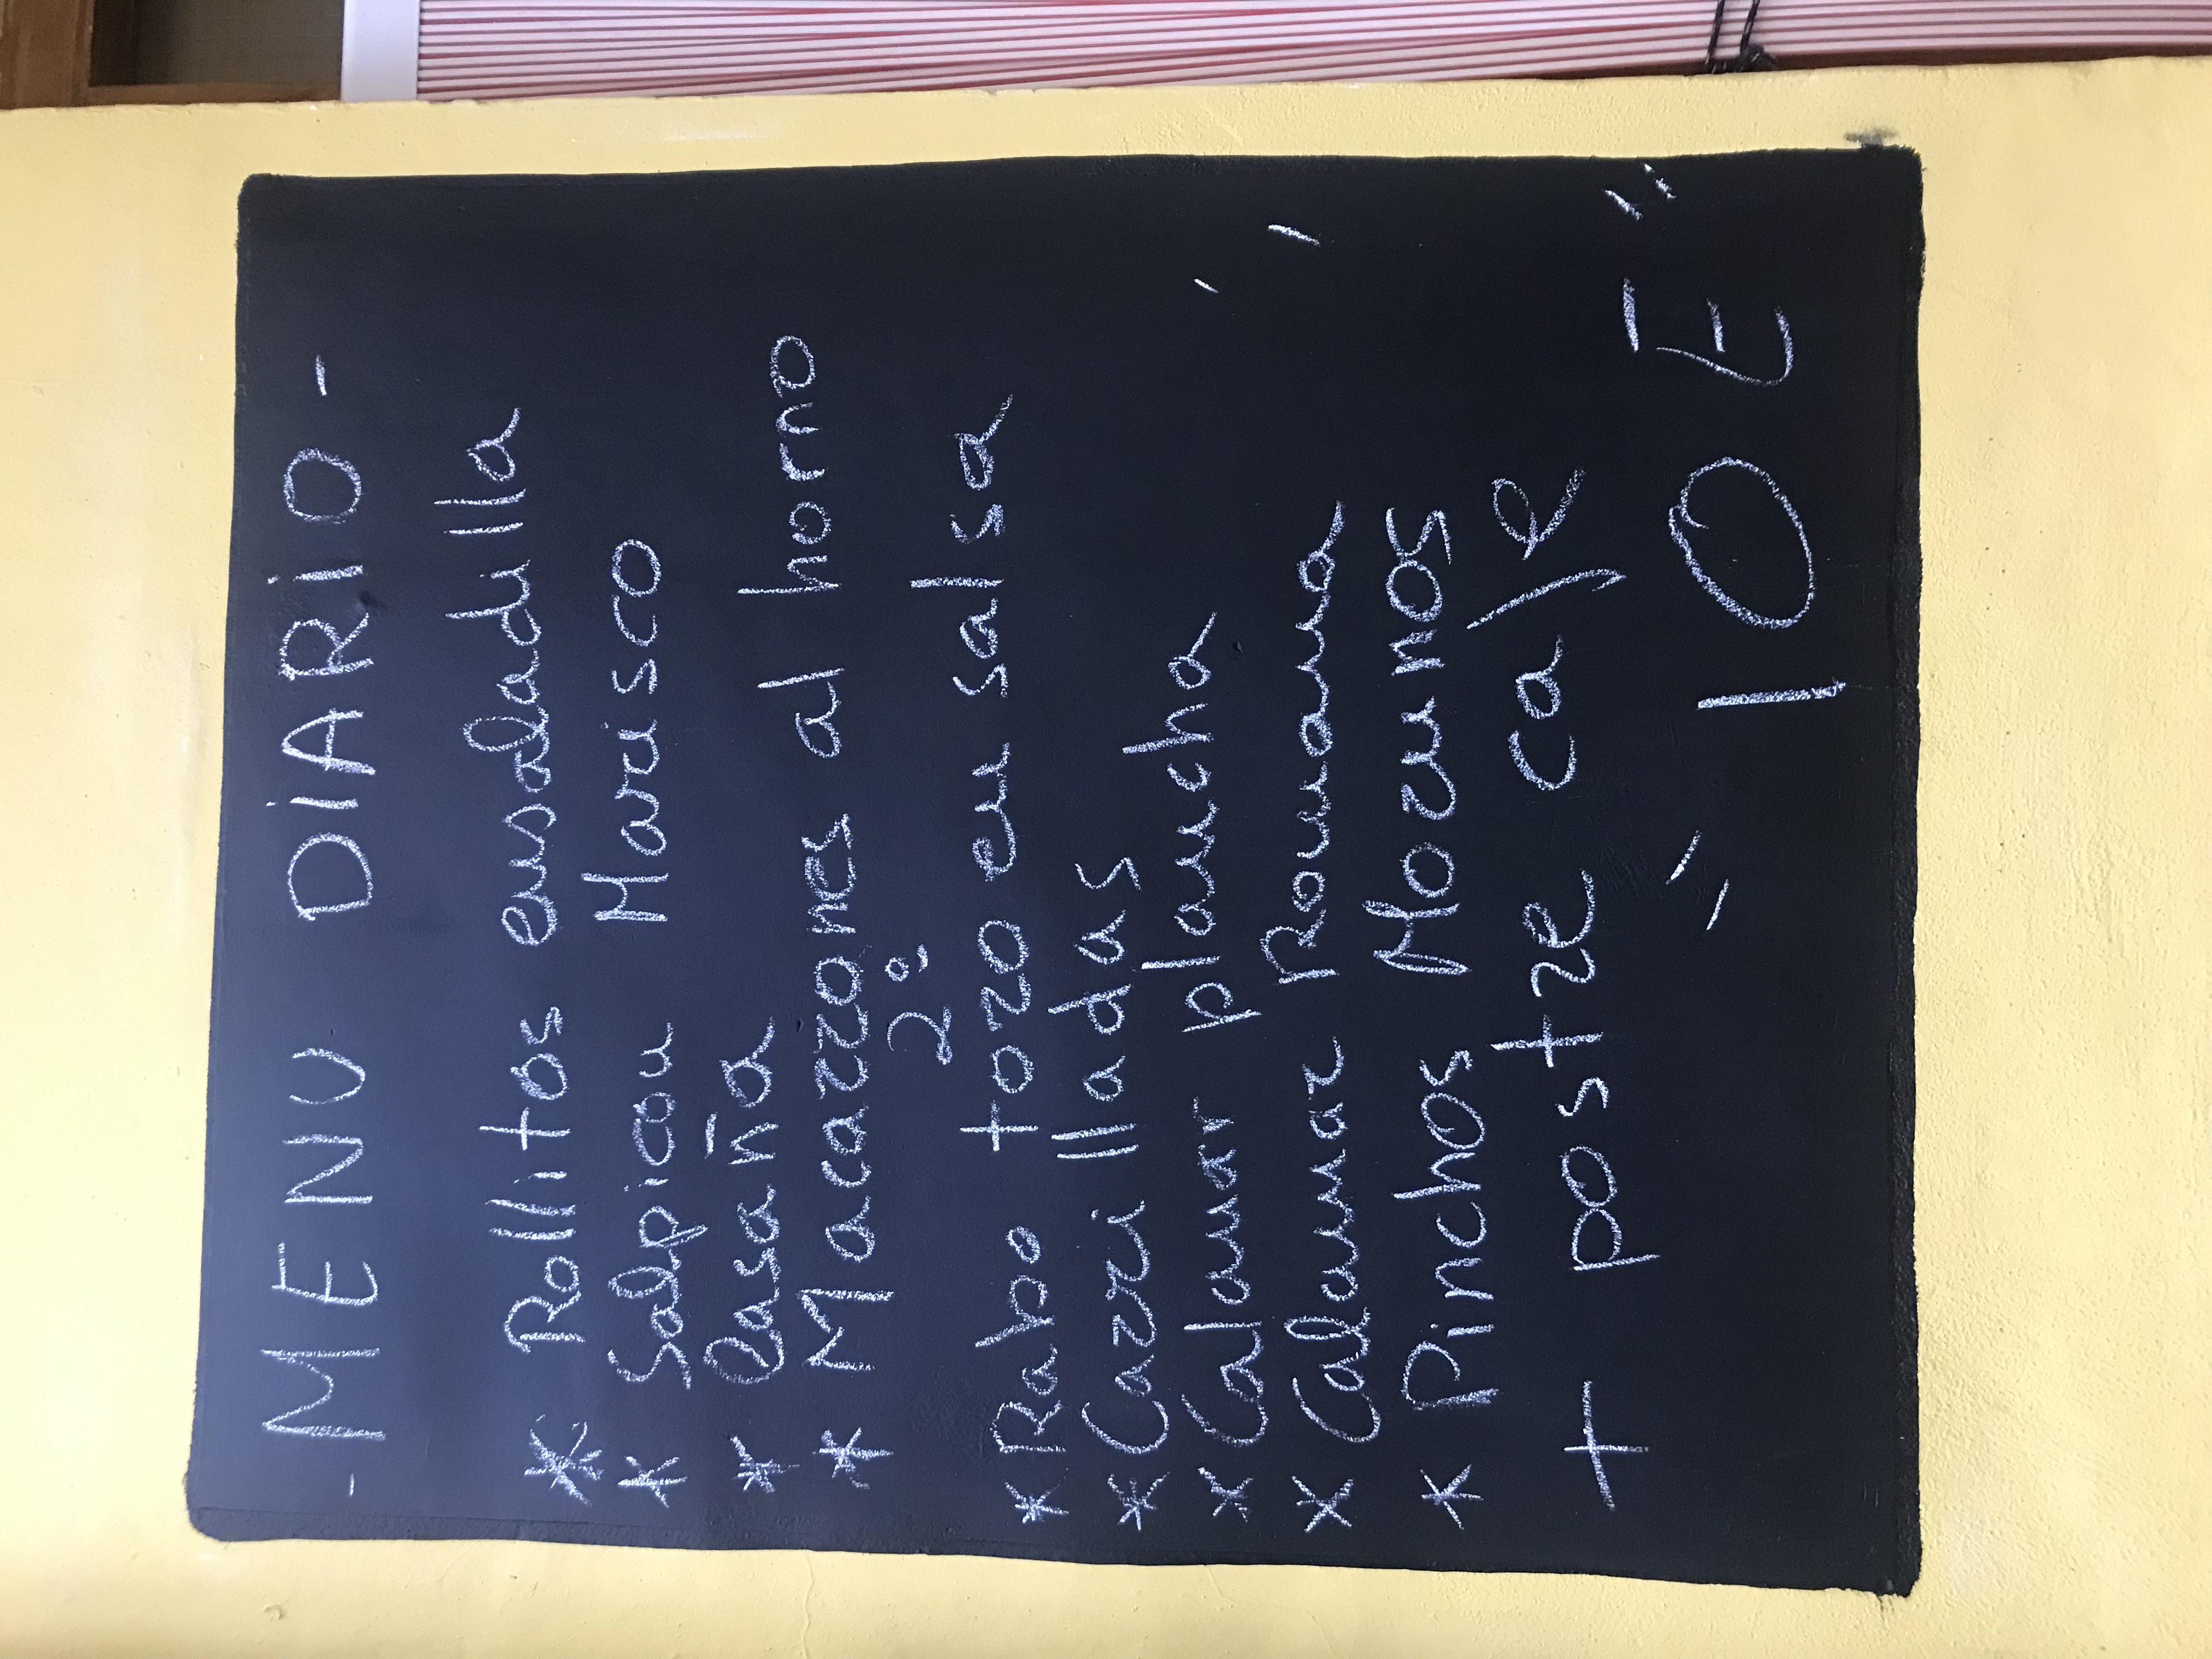 - MENU DIARIO -
* Rollitos ensaladilla
* Salpicon Marisco
* Lasaña
* Macarrones al horno
2º
* Rabo toro en salsa
* Carrilladas
* Calamar plancha
* Calamar Romana
* Pinchos Morunos
+ postre café
10 €